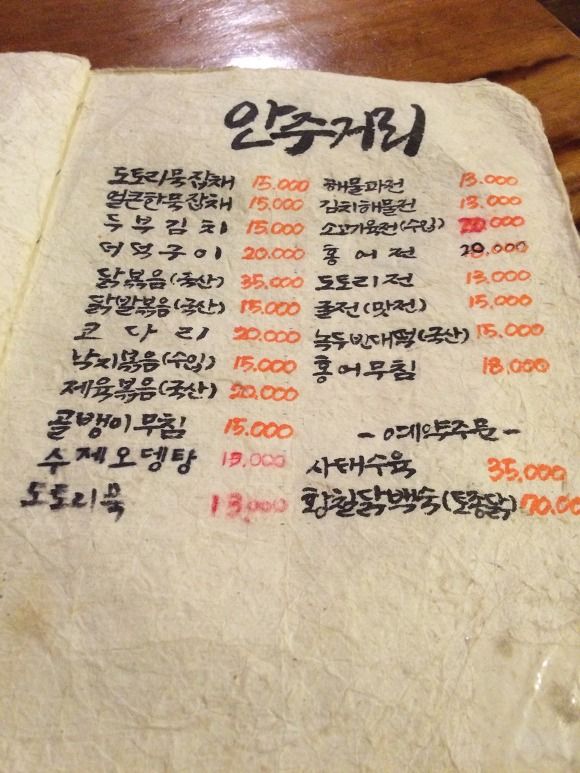 안주거리
도토리묵잡채 15.000
얼큰한묵잡채 15.000
두부김치 15.000
더덕구이 20.000
닭볶음(국산) 35.000
닭발볶음(국산) 15.000
코다리 20.000
낙지볶음(수입) 15.000
제육볶음(국산) 20.000
골뱅이무침 15.000
수제오뎅탕 15,000
도토리묵 13,000
해물파전 13.000
김치해물전 13.000
소고기육전(수입) 20.000
홍어전 20.000
도토리전 13.000
굴전(맛전) 15.000
녹두빈대떡(국산) 15.000
홍어무침 18.000
-예약주문-
사태수육 35.000
황칠닭백숙(토종닭) 70.00